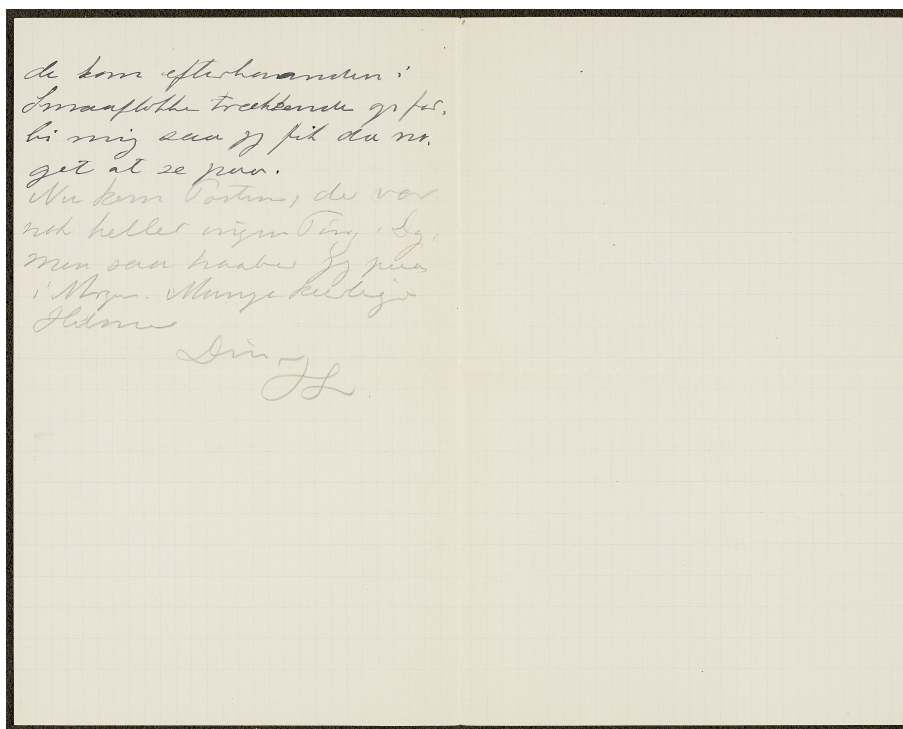 de kom efterhaanden i
Smaaflokke trækkende for,
bi mig saa jeg fik da no,
get at se paa.
Nu kom Posten, der var
nok heller ingen Ting i Dag,
men saa haaber jeg paa
i Morgen. Mange kærlige
Hilsner
Din
JL